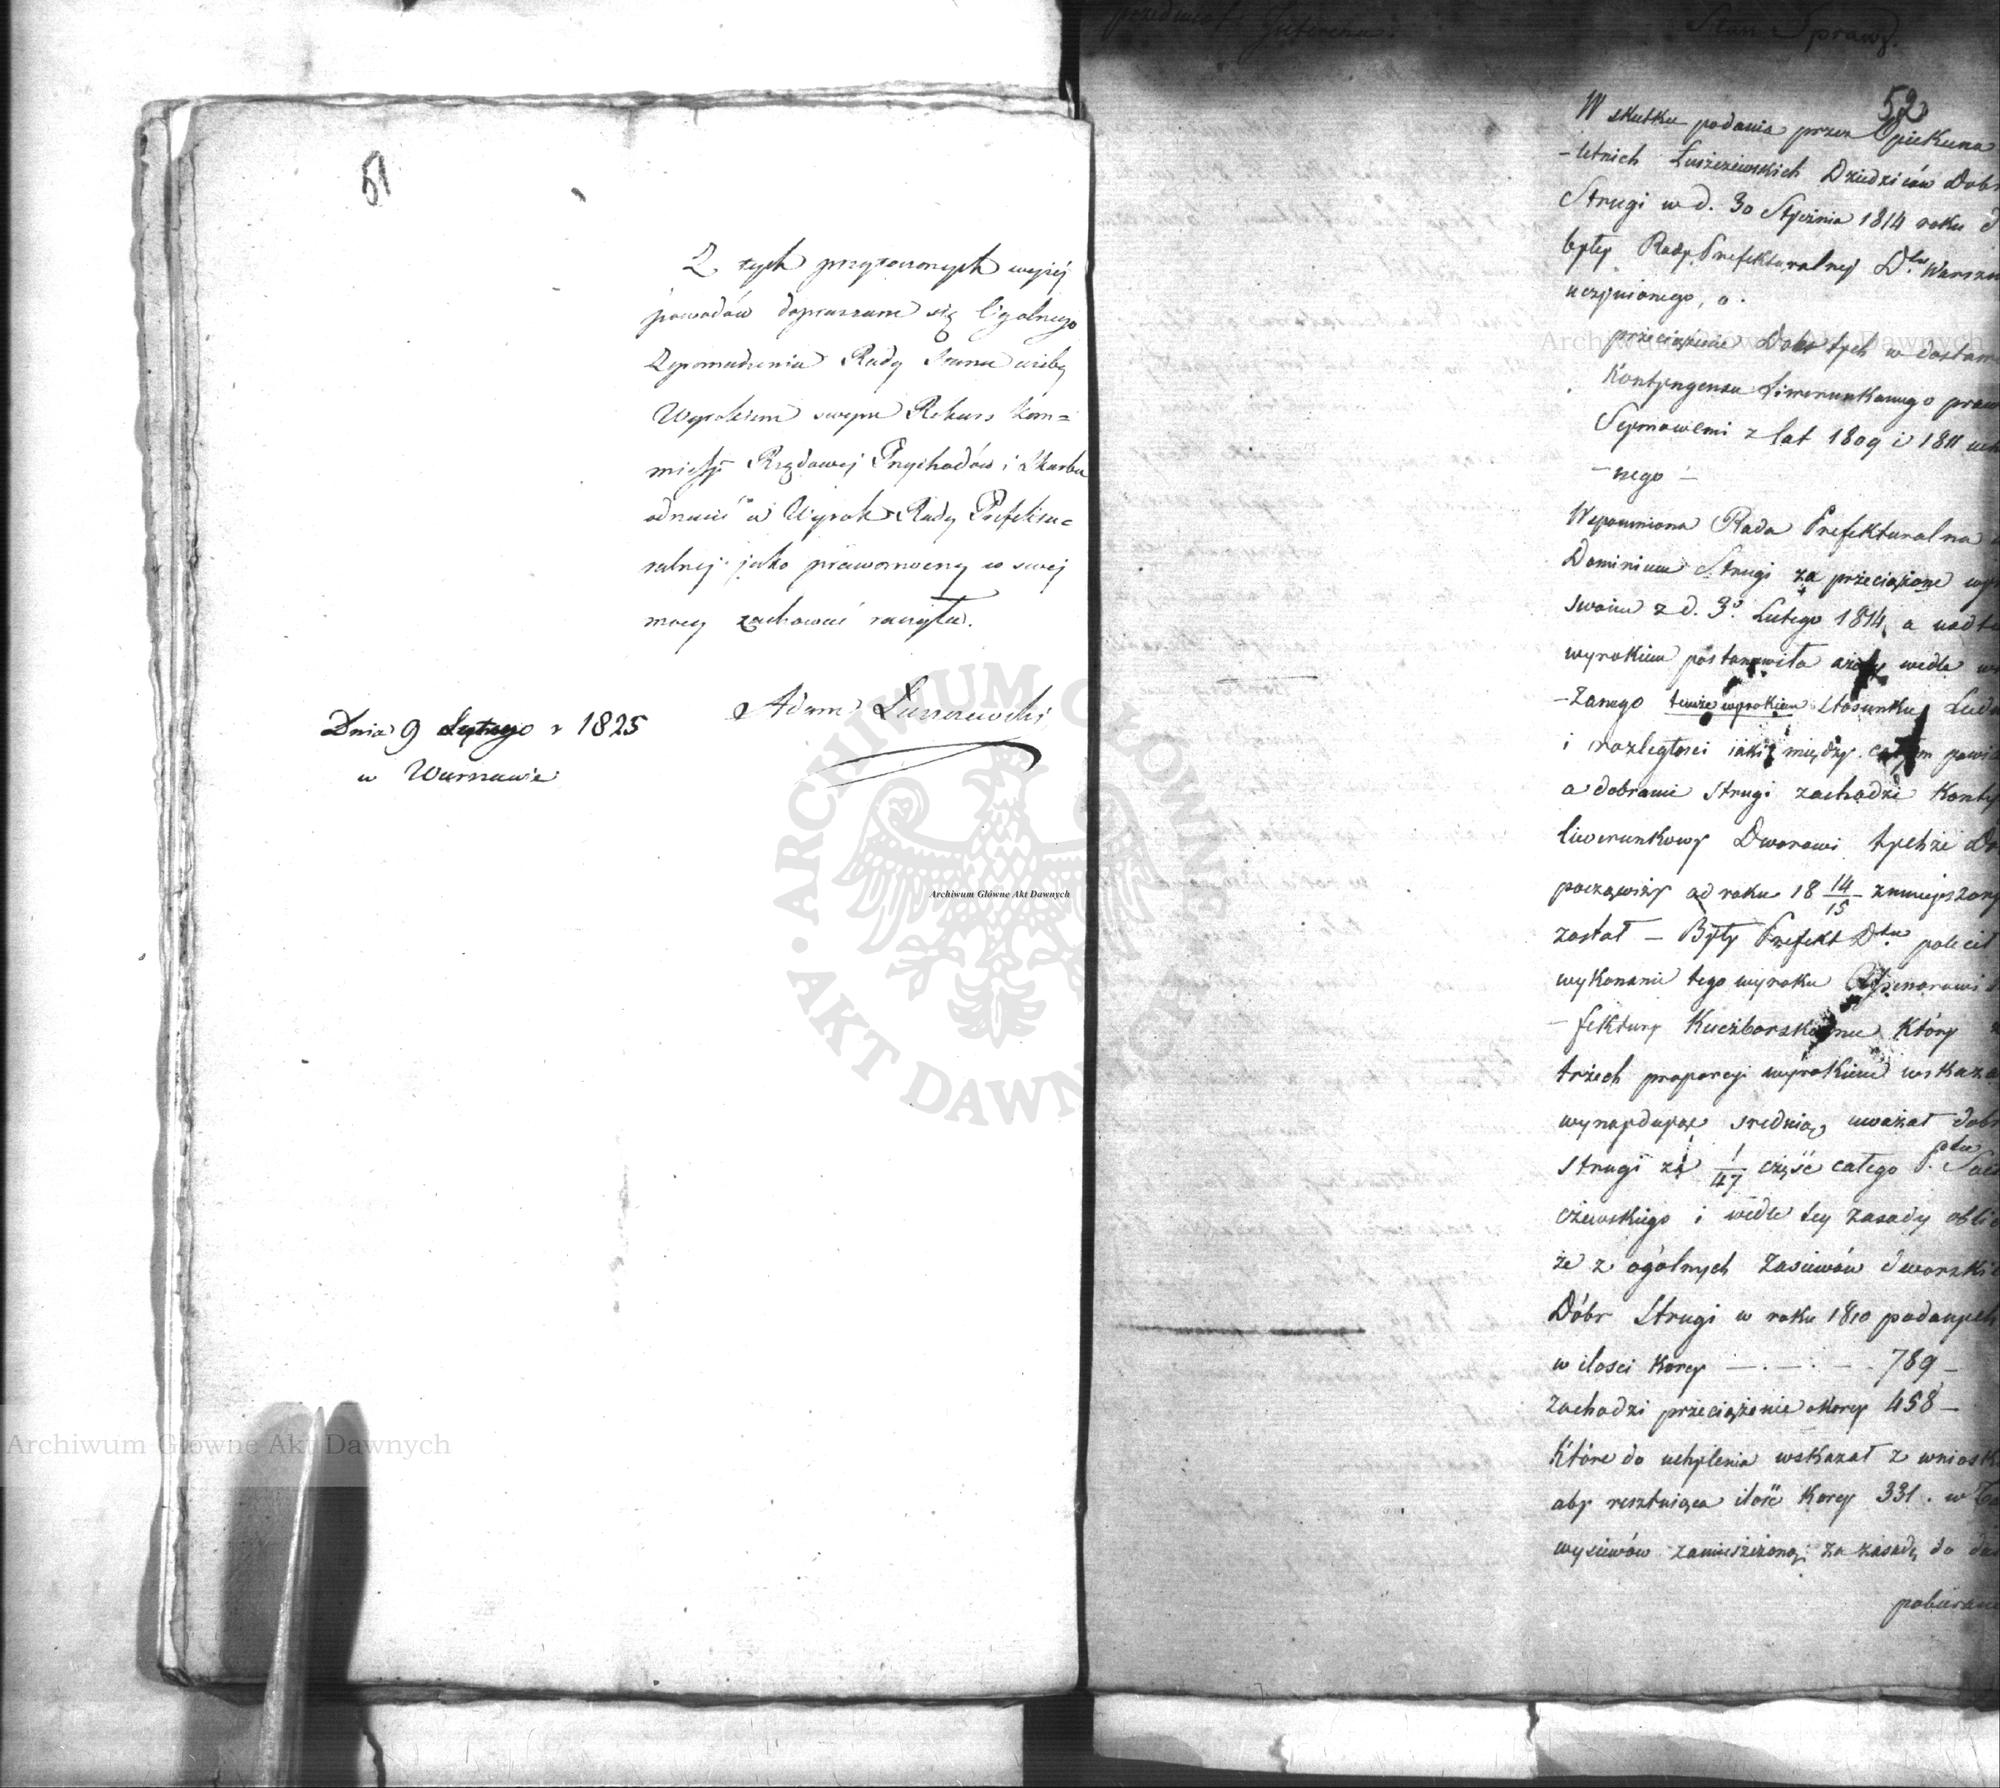 51
Z tych przytoczonych wyżej
powodów dopraszam się
Zgromadzenia Rady Stanu ażeby
Wyrokiem swym Rekurs Kom=
missyi Rządowej Przychodów i Skarbu
odrzucić a Wyrok Rady Prefektu=
ralnej jako prawomocny w swej
mocy zachować raczyła.
Adam Łuszczewski
Dnia 9 Lutego r 1825
w Warszawie
przedmiot Interesu.
Stan Sprawy.
52
W skutku podania przez Opiekuna
-letnich Łuszczewskich Dziedziców Dobr
Strugi w d. 30 Stycznia 1814 roku d
byłey Rady Prefekturalnej Dtu Warsza
uczynionego, o
przeciążenie Dobr tych w dostaw
Kontyngensu Liwerunkowego praw
Seymowemi z lat 1809 i 1811 uch
-nego -
Wspomniona Rada Prefekturalna
Dominium Strugi za przeciążone wy
swoim z d. 3o Lutego 1814 a nadto
wyrokiem postanowiła ażeby wedle
-zanego tymże wyrokiem Stosunku Ludn
i rozległości jaki między całym powia
a dobrami Strugi zachodzi Konty
liwerunkowy Dworowi tychże Do
począwszy od roku 18 14/15 zmniejszony
został - Były Prefekt Dtu polecił
wykonanie tego wyroku
-fektury Kuczborskiemu Który z
trzech proporcyi wyrokiem wskaza
wynayduiąc srednią, uważał dobr
Strugi za 1/47 część całego Ptu Soch
czewskiego i wedle tey zasady obli
że z ogólnych Zasiewów dworski
Dóbr Strugi w roku 1810 podanych
w ilości Korcy - . - . - - 789 -
Zachodzi przeciążenie o Korcy 458 -
Które do uchylenia wskazał z wniosk
aby resztuiąca ilość Korcy 331. w Ta
wysiewów zamieszczona, za zasadę do da
pobieran